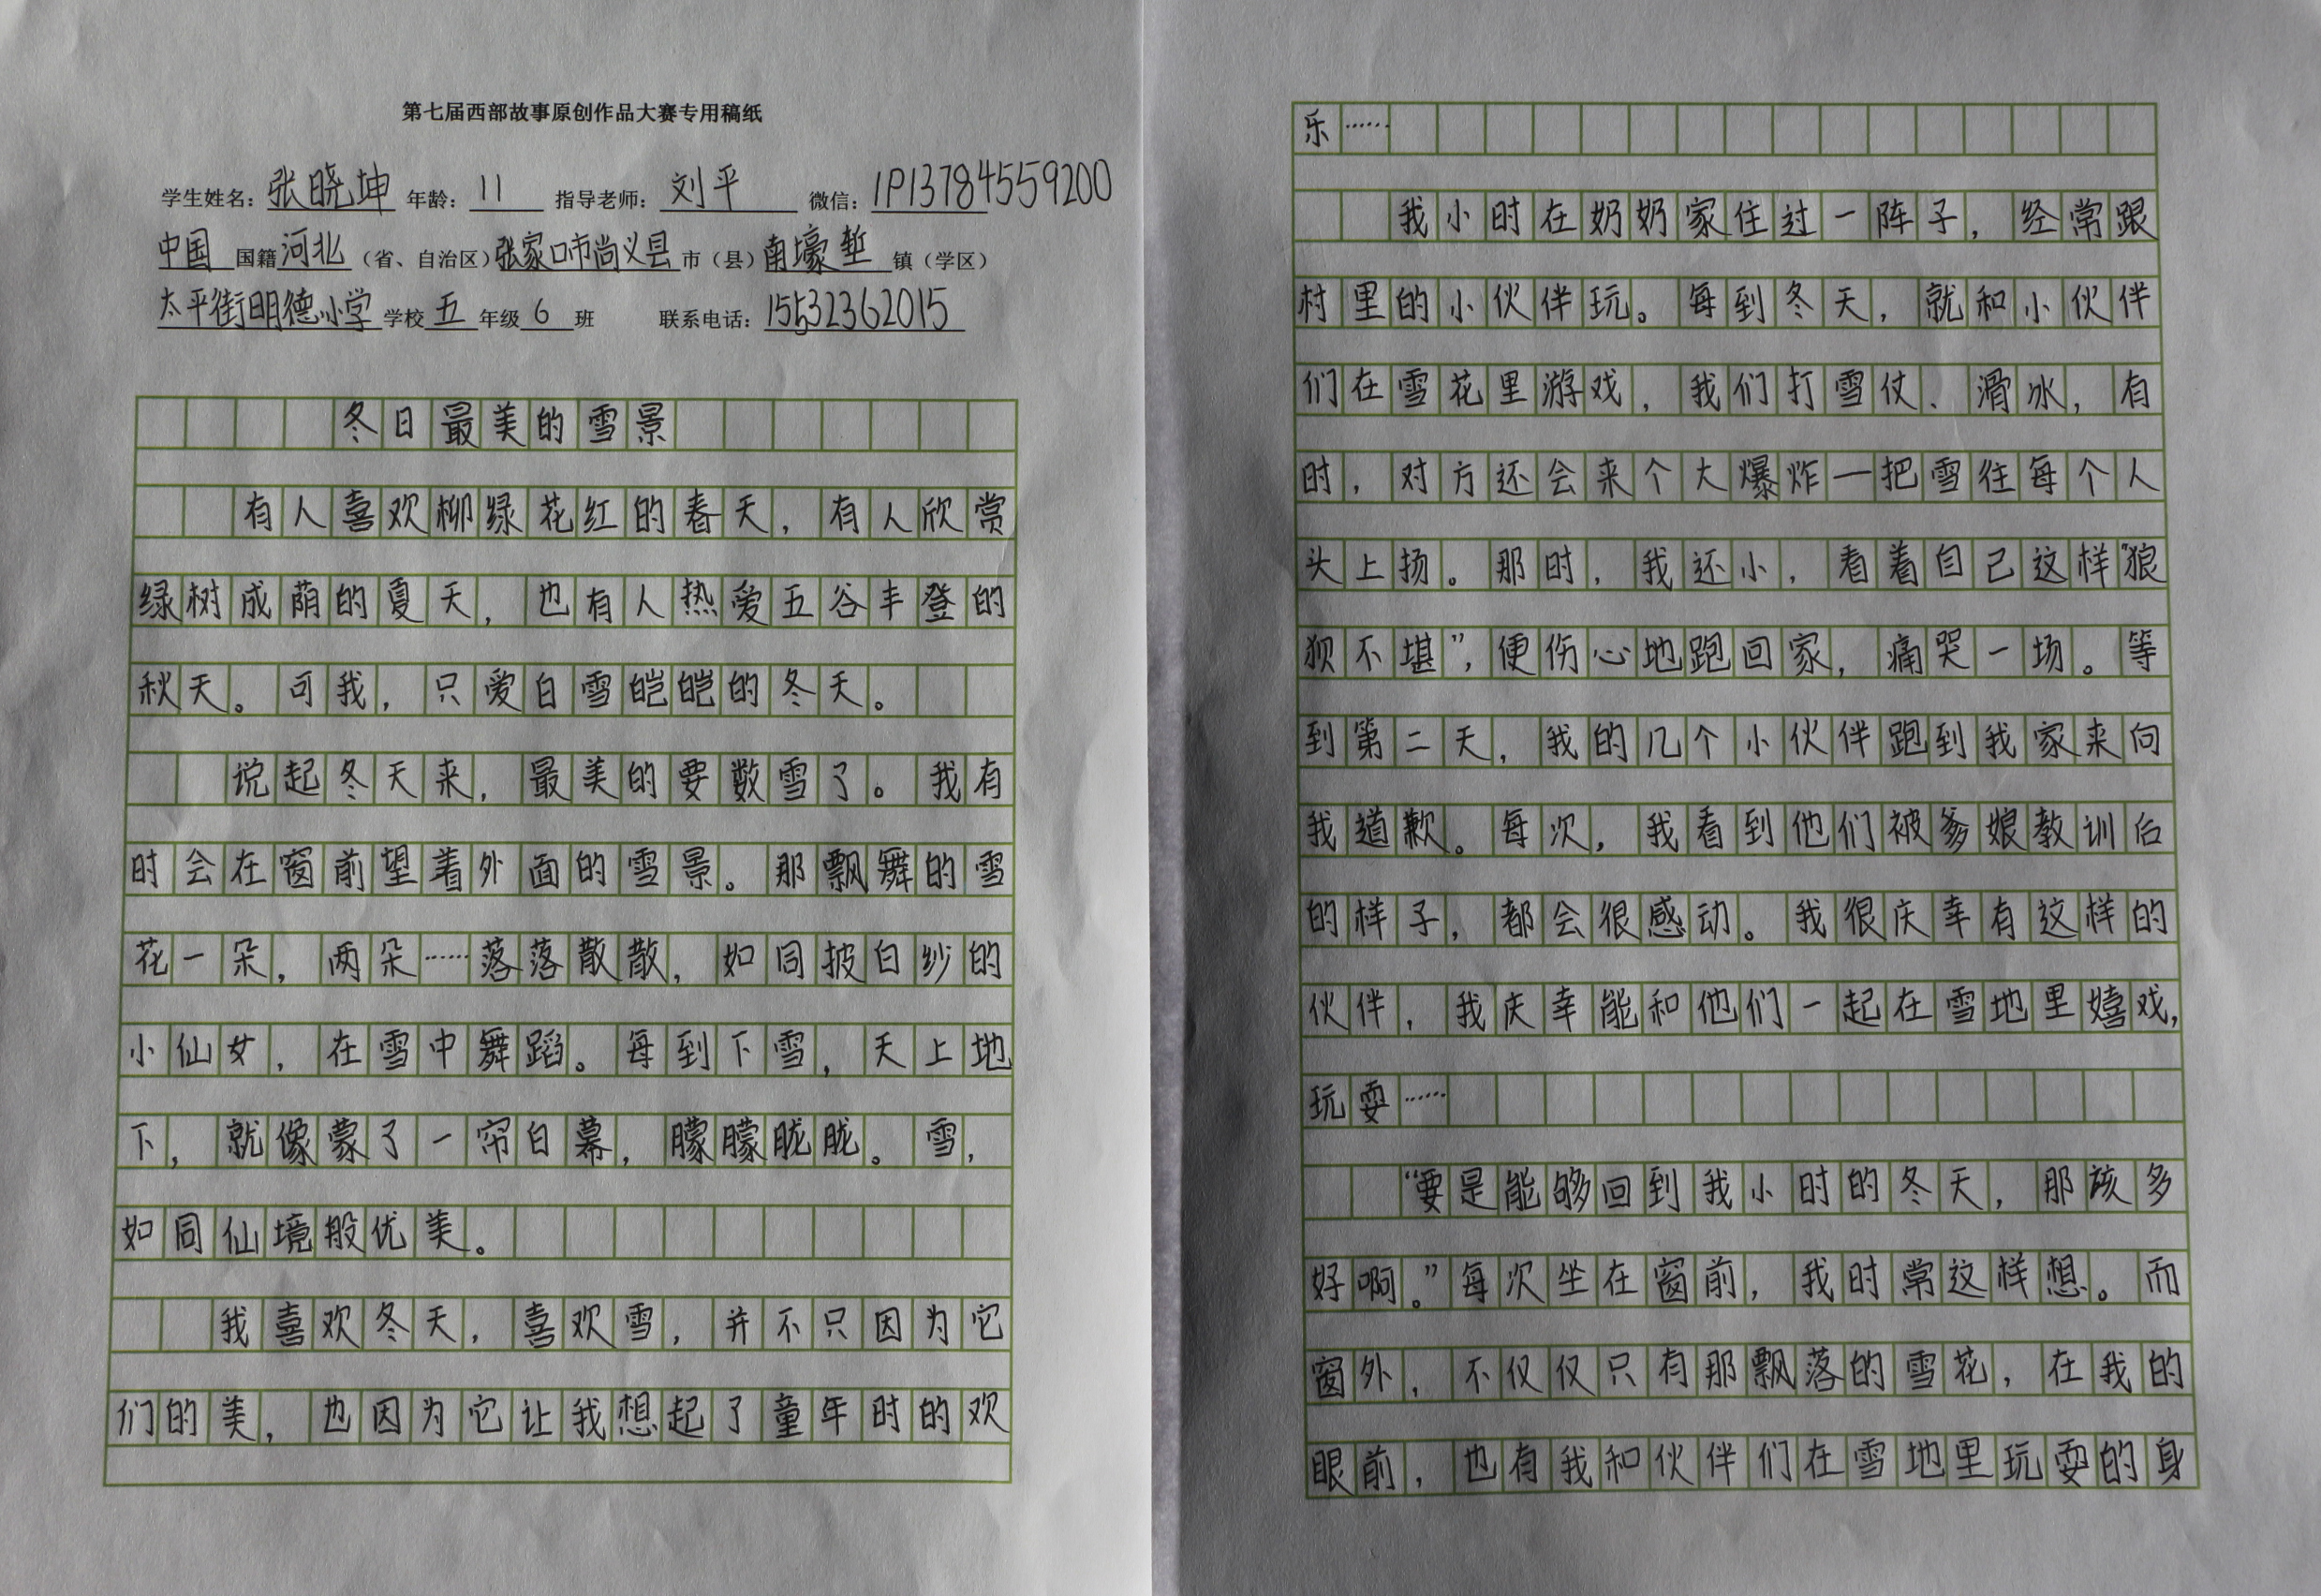 第七届西部故事原创作品大赛专用稿纸
学生姓名：张晓坤 年龄：11 指导老师：刘平 微信：1P13784559200
中国 国籍 河北（省、自治区）张家口市尚义县 市（县）南壕堑 镇（学区）
太平街明德小学 学校 五 年级 6 班 联系电话：15532362015
冬日最美的雪景
有人喜欢柳绿花红的春天，有人欣赏
绿树成荫的夏天，也有人热爱五谷丰登的
秋天。可我，只爱白雪皑皑的冬天。
说起冬天来，最美的要数雪了。我有
时会在窗前望着外面的雪景。那飘舞的雪
花一朵，两朵……落落散散，如同披白纱的
小仙女，在雪中舞蹈。每到下雪，天上地
下，就像蒙了一帘白幕，朦朦胧胧。雪，
如同仙境般优美。
我喜欢冬天，喜欢雪，并不只因为它
们的美，也因为它让我想起了童年时的欢
乐……
我小时在奶奶家住过一阵子，经常跟
村里的小伙伴玩。每到冬天，就和小伙伴
们在雪花里游戏，我们打雪仗、滑冰，有
时，对方还会来个大爆炸—把雪往每个人
头上扬。那时，我还小，看着自己这样“狼
狈不堪”，便伤心地跑回家，痛哭一场。等
到第二天，我的几个小伙伴跑到我家来向
我道歉。每次，我看到他们被爹娘教训后
的样子，都会很感动。我很庆幸有这样的
伙伴，我庆幸能和他们一起在雪地里嬉戏，
玩耍……
“要是能够回到我小时的冬天，那该多
好啊。”每次坐在窗前，我时常这样想。而
窗外，不仅仅只有那飘落的雪花，在我的
眼前，也有我和伙伴们在雪地里玩耍的身